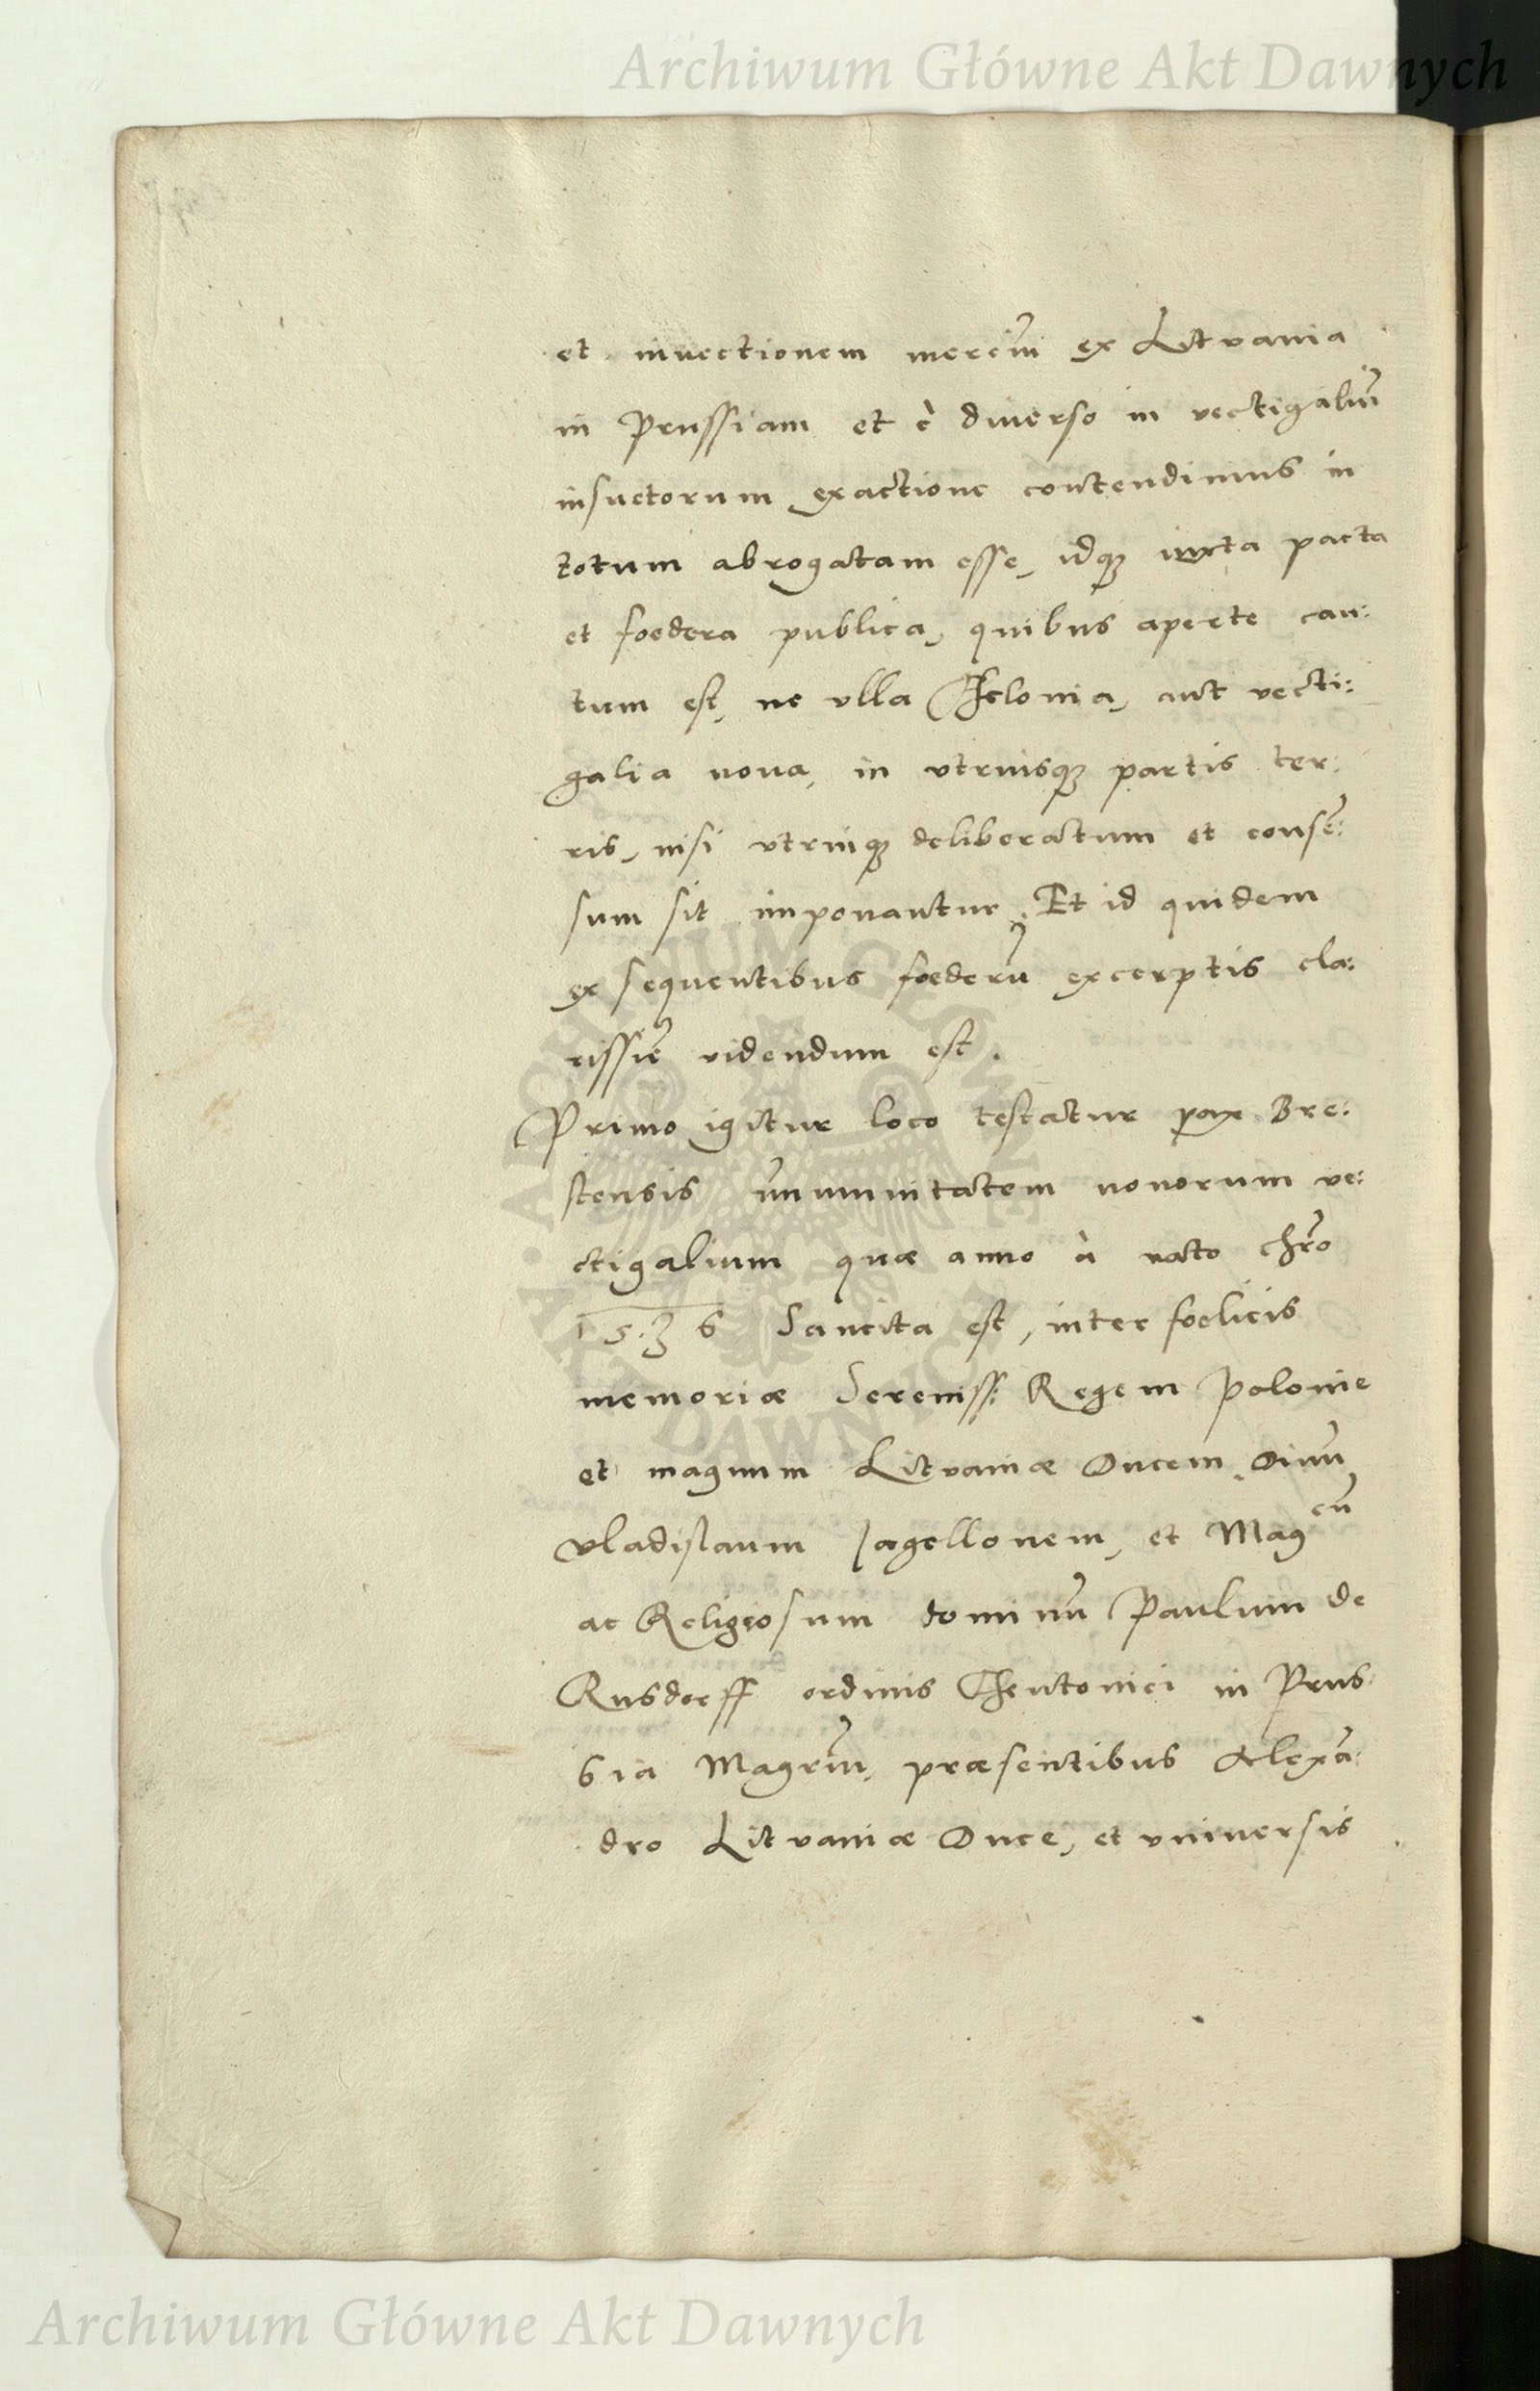 Archiwum Główne Akt Dawnych
et inuectionem merciũ ex Litvania
in Prussiam et è diuerso in vectigaliũ
insuetorum exactione contendimus in
totum abrogatam esse, idq; iuxta pacta
et foedera publica, quibus aperte cau:
tum est, ne vlla Thelonia, aut vecti:
galia noua, in vtriusq; partis ter:
ris, nisi vtrinq; deliberatum et consẽ:
sum sit imponantur. Et id quidem
ex sequentibus foederũ excerptis cla:
rissiẽ videndum est.
Primo igitur loco testatur pax Bre:
stensis im̃unitatem nouorum ve:
ctigalium quæ anno à nato chr̃o
1536 Sancita est, inter foelicis
memoriæ Sereniss: Regem Polonie
et magnum Litvaniæ Ducem Diuũ
Vladislaum Jagellonem, et Magcũ
ac Religiosum dominũ Paulum de
Rusdorff ordinis Theutonici in Prus:
sia Magrũm, præsentibus Alexã:
dro Litvaniæ Duce, et vniuersis
ARCHIWUM GŁÓWNE
AKT DAWNYCH
Archiwum Główne Akt Dawnych